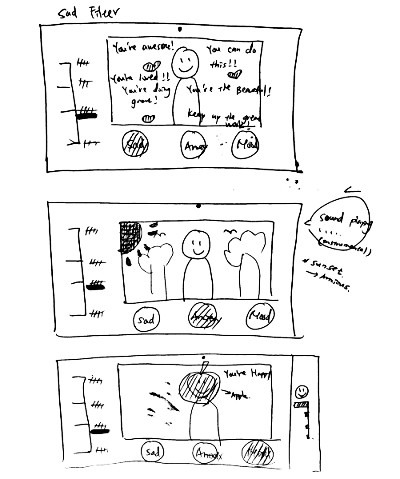 Sad Filter
You're awesome!
You can do
this!!
You're loved!!
You're doing
great!
You're the Beautiful!
Keep up the great
work
Sad
Angry
Mad
Sound playing
(instrumental)
sunset
sad
Angry
Mad
You're Happy
Apple
sad
Angry